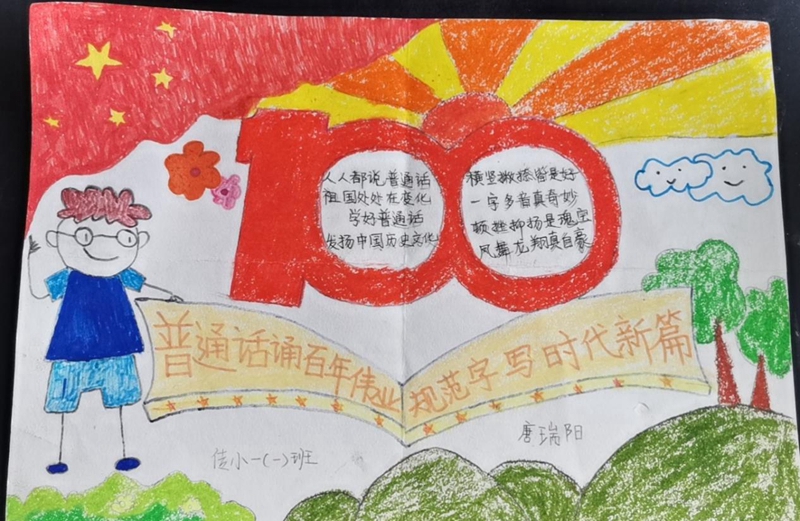 人人都说普通话
祖国处处在变化
学好普通话
发扬中国历史文化
横竖撇捺皆是好
一字多音真奇妙
顿挫抑扬是瑰宝
凤舞龙翔真自豪
普通话诵百年伟业
规范字写时代新篇
唐瑞阳
小一(一)班